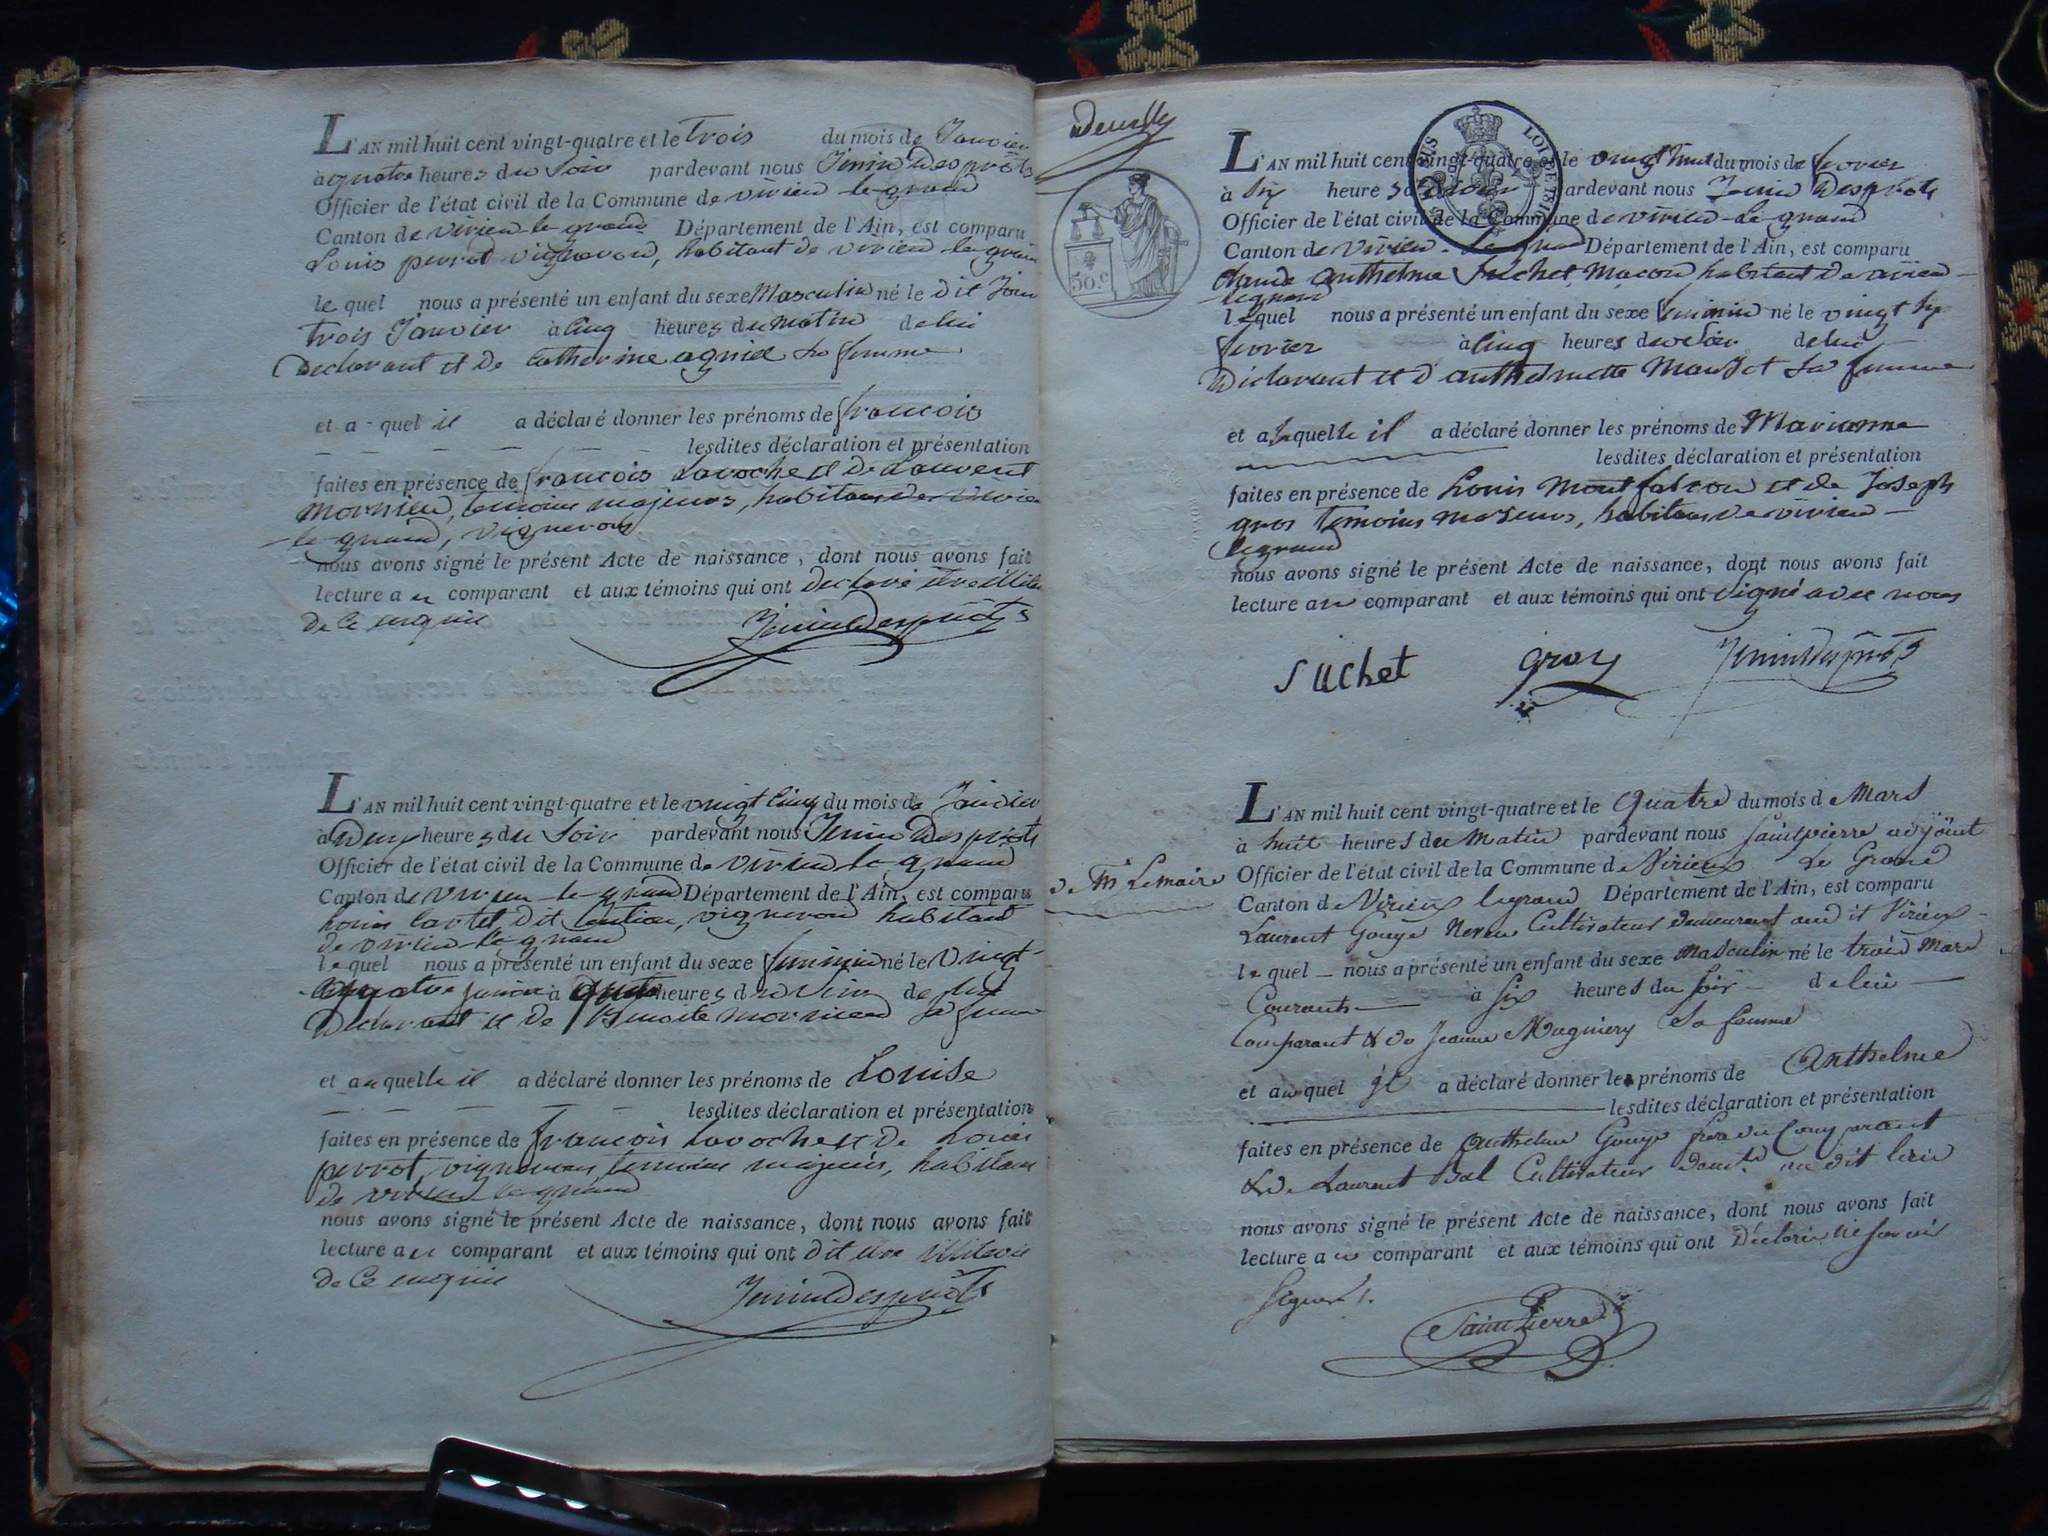 L'AN mil huit cent vingt-quatre et le trois du mois de Janvier
à quatre heures du Soir pardevant nous Jenin Desprots
Officier de l'état civil de la Commune de virieu le grand
Canton de virieu le grand Département de l'Ain, est comparu
Louis perrot vigneron, habitant de virieu le grand
le quel nous a présenté un enfant du sexe Masculin né le dit Jour
trois Janvier à cinq heures du matin de lui
Declarant et de Catherine sa femme
et a quel il a déclaré donner les prénoms de francois
lesdites déclaration et présentation
faites en présence de francois Lavoche et de Laurent
mornieu, temoins majeurs, habitans de virieu
le grand, vignerons
nous avons signé le présent Acte de naissance, dont nous avons fait
lecture au comparant et aux témoins qui ont declaré
de ce enquis
Jenin Desprots
L'AN mil huit cent vingt-quatre et le vingt cinq du mois de Janvier
à Deux heures du Soir pardevant nous Jenin Desprots
Officier de l'état civil de la Commune de virieu le grand
Canton de virieu le grand Département de l'Ain, est comparu
Louis dit vigneron habitant
de virieu le grand
le quel nous a présenté un enfant du sexe feminin né le vingt
quatre à heures du de lui
Declarant et de Benoite mornieu sa femme
et a quelle il a déclaré donner les prénoms de Louise
lesdites déclaration et présentation
faites en présence de francois Lavoche et de Louis
perrot, vignerons temoins majeurs, habitans
de virieu le grand
nous avons signé le présent Acte de naissance, dont nous avons fait
lecture au comparant et aux témoins qui ont dit
de ce enquis
Jenin Desprots
50.c
LOI DE 1816
L'AN mil huit cent vingt-quatre et le vingt du mois de fevrier
à Six heures pardevant nous Jenin Desprots
Officier de l'état civil de la Commune de virieu le grand
Canton de virieu le grand Département de l'Ain, est comparu
Claude anthelme Suchet, Maçon habitant de virieu
le grand
le quel nous a présenté un enfant du sexe feminin né le vingt
fevrier à cinq heures du Soir de lui
Déclarant et d'anthelmette sa femme
et a laquelle il a déclaré donner les prénoms de Marianne
lesdites déclaration et présentation
faites en présence de Louis Montfalcon et de Joseph
gros temoins majeurs, habitans de virieu
le grand
nous avons signé le présent Acte de naissance, dont nous avons fait
lecture au comparant et aux témoins qui ont signé avec nous
Suchet gros Jenin Desprots
L'AN mil huit cent vingt-quatre et le quatre du mois de Mars
à huit heures du Matin pardevant nous Saintpierre adjoint
de Mr Lemaire
Officier de l'état civil de la Commune de Virieux Le Grand
Canton de Virieux legrand Département de l'Ain, est comparu
Laurent Gouye Neveu Cultivateur demeurant audit Virieux
le quel nous a présenté un enfant du sexe masculin né le trois Mars
Courant à Six heures du Soir de lui
Comparant & de Jeanne Mugniery Sa femme
et auquel il a déclaré donner les prénoms de Anthelme
lesdites déclaration et présentation
faites en présence de Anthelme Gouye frere du Comparant
& de Laurent Bal Cultivateur au dit lieu
nous avons signé le présent Acte de naissance, dont nous avons fait
lecture au comparant et aux témoins qui ont Déclaré ne savoir
Signer
Saintpierre